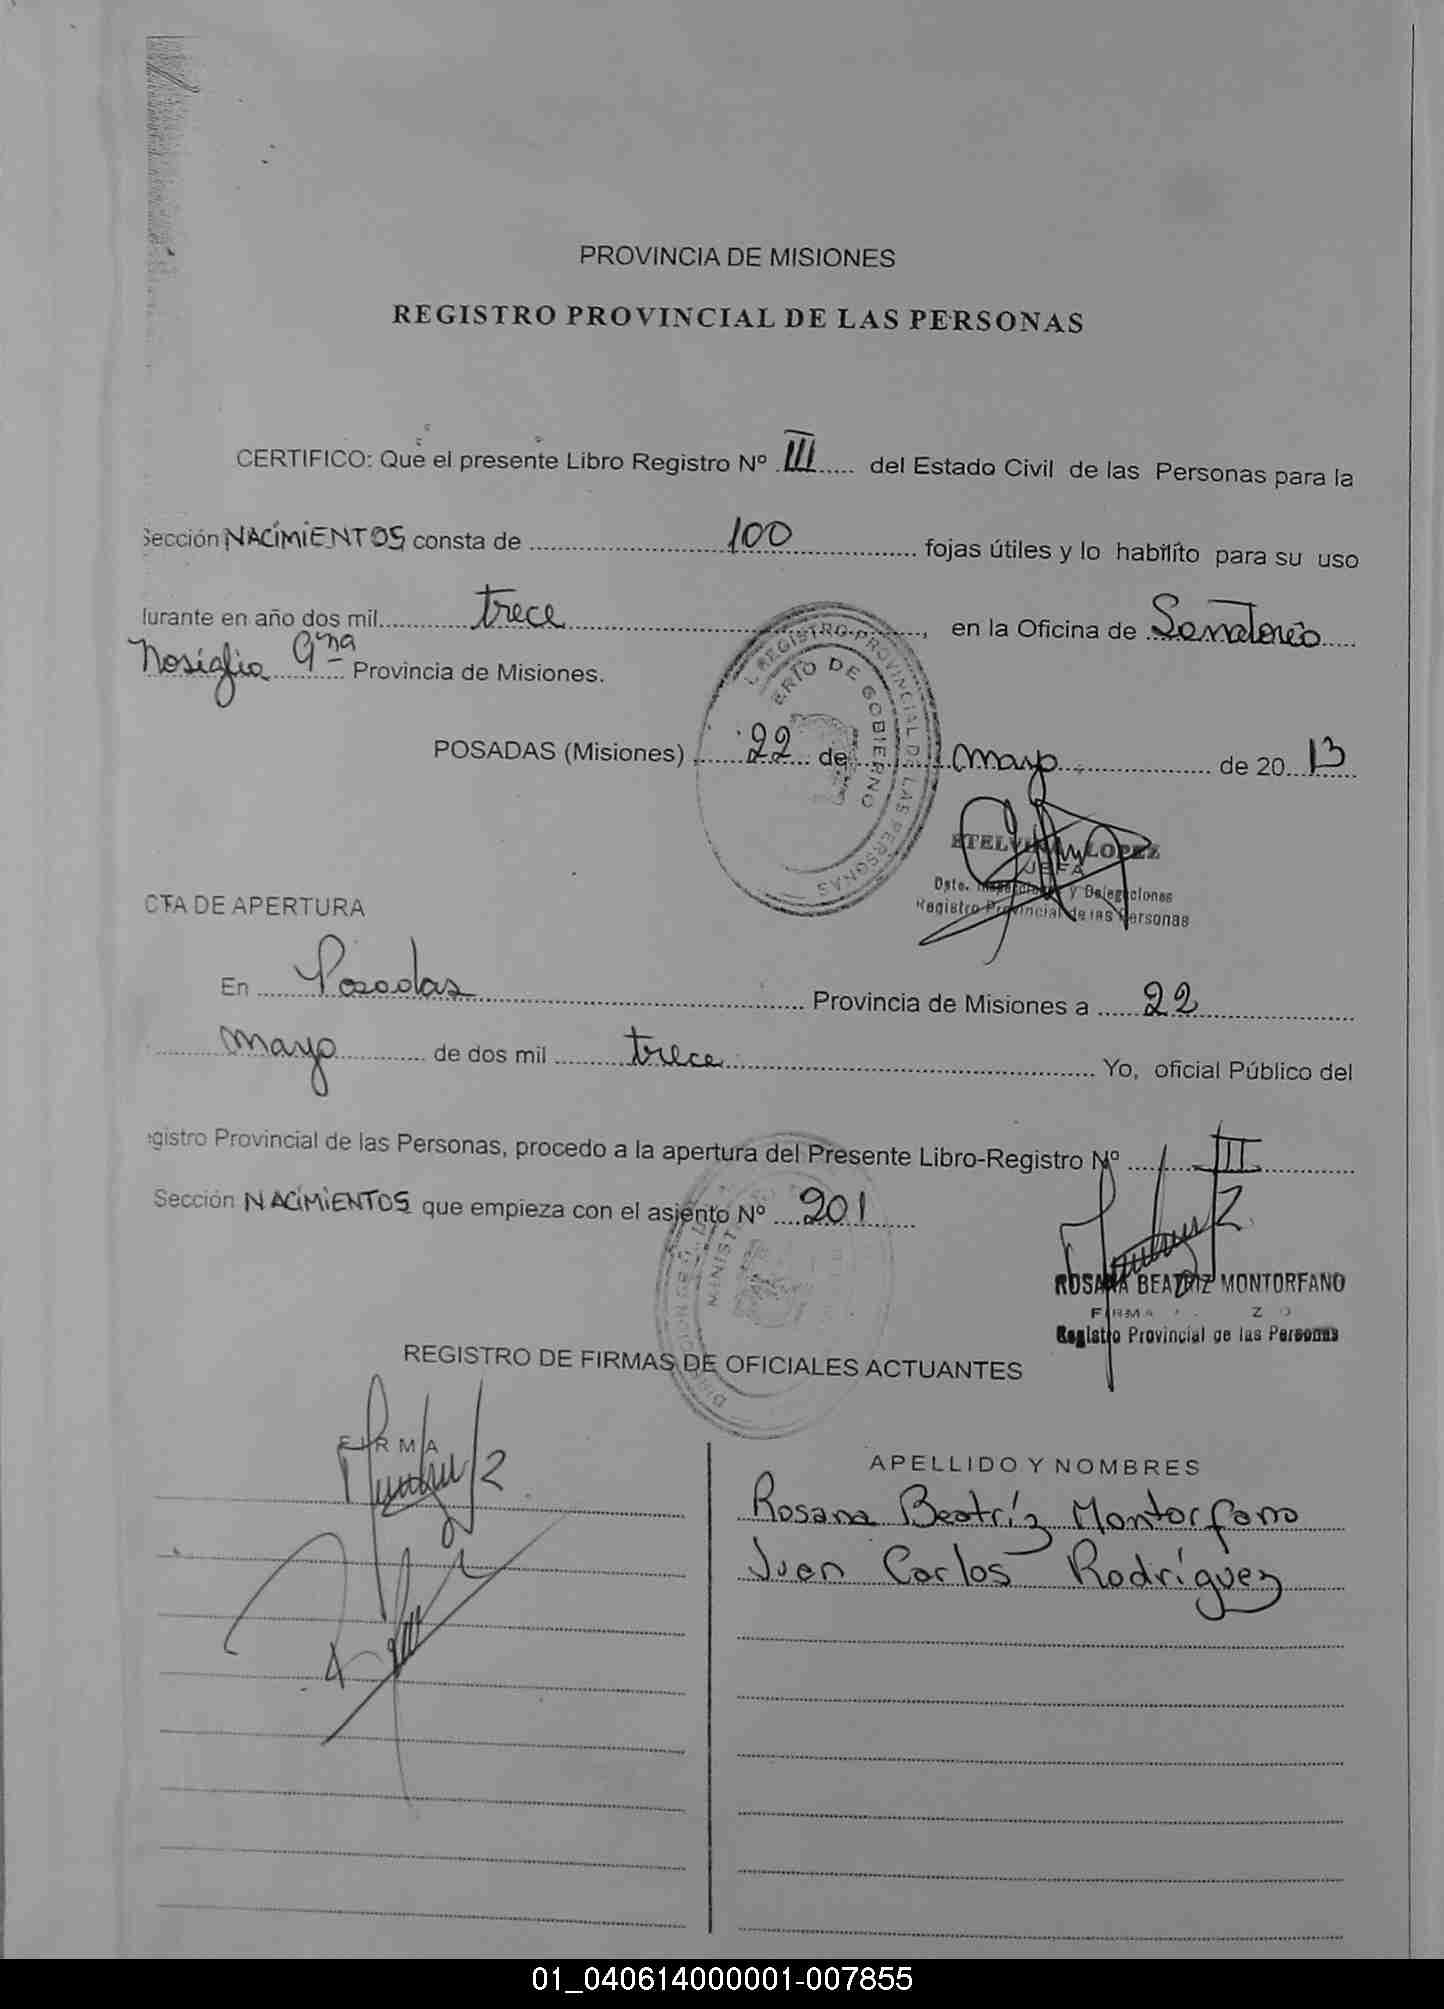 PROVINCIA DE MISIONES
REGISTRO PROVINCIAL DE LAS PERSONAS
CERTIFICO: Que el presente Libro Registro Nº III del Estado Civil de las Personas para la
Sección NACIMIENTOS consta de 100 fojas útiles y lo habilito para su uso
durante en año dos mil trece, en la Oficina de Sanatorio
Nosiglia Gna Provincia de Misiones.
POSADAS (Misiones) 22 de mayo de 2013
REGISTRO PROVINCIAL DE LAS PERSONAS
ERIO DE GOBIERNO
ETELVINA LOPEZ
JEFA
Dpto. Inspecciones y Delegaciones
Registro Provincial de las Personas
CTA DE APERTURA
En Posadas Provincia de Misiones a 22
mayo de dos mil trece Yo, oficial Público del
egistro Provincial de las Personas, procedo a la apertura del Presente Libro-Registro Nº III
Sección NACIMIENTOS que empieza con el asiento Nº 201
ROSANA BEATRIZ MONTORFANO
FIRMA
Registro Provincial de las Personas
REGISTRO DE FIRMAS DE OFICIALES ACTUANTES
FIRMA
APELLIDO Y NOMBRES
Rosana Beatríz Montorfano
Juan Carlos Rodríguez
01_040614000001-007855